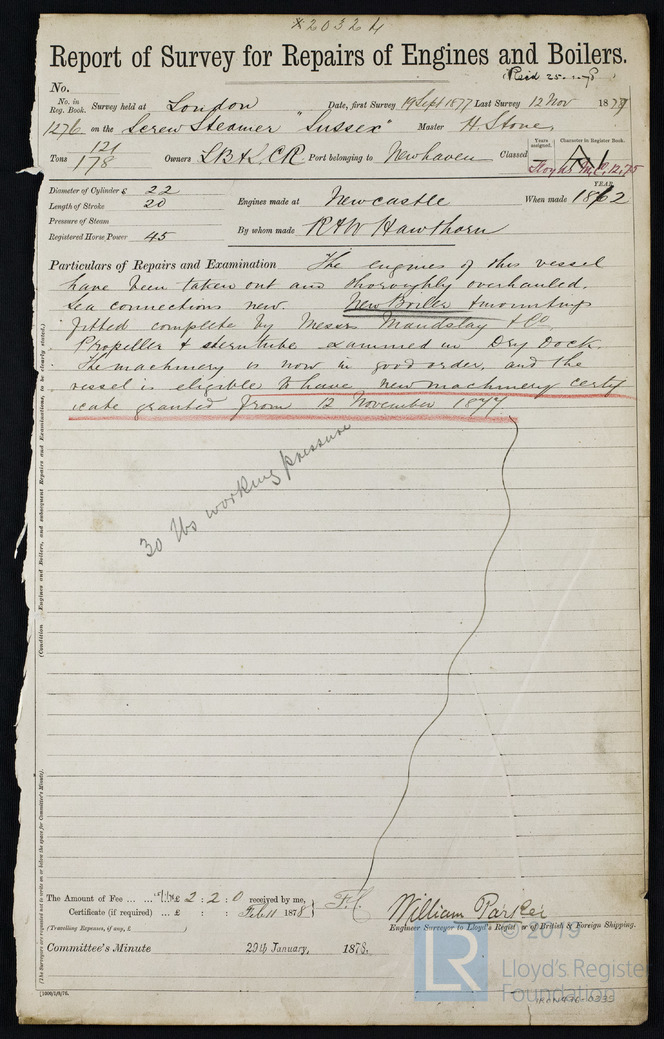 *20324
Report of Survey for Repairs of Engines and Boilers.
No.
No. in Reg. Book. Survey held at London Date, first Survey 19 Sept 1877 Last Survey 12 Nov 1877
1276 on the Screw Steamer "Sussex" Master H. Stone
Tons 121 178 Owners LB & SCR Port belonging to Newhaven Classed Years assigned. Character in Register Book. A1
Lloyds M.C. 12,75
Diameter of Cylinders 22
Length of Stroke 20
Pressure of Steam
Registered Horse Power 45
Engines made at Newcastle When made YEAR 1862
By whom made R & W Hawthorn
Particulars of Repairs and Examination The engines of this vessel
have been taken out and thoroughly overhauled.
Sea connections new. New Boiler & mountings
fitted complete by Messrs Maudslay & Co.
Propeller & sterntube examined in Dry Dock.
The machinery is now in good order, and the
vessel is eligible to have new machinery certif
icate granted from 12 November 1877.
30 lbs working pressure
(Condition Engines and Boilers, and subsequent Repairs and Examinations, to be clearly stated.)
(The Surveyors are requested not to write on or below the space for Committee's Minute).
The Amount of Fee ... ... £ 2 : 2 : 0 received by me,
Certificate (if required) ... £ : : Feb 11 1878
(Travelling Expenses, if any, £ )
William Parker
Engineer Surveyor to Lloyd's Register of British & Foreign Shipping.
Committee's Minute 29th January, 1878.
© 2019
LR Lloyd's Register
Foundation
IRON476-0333